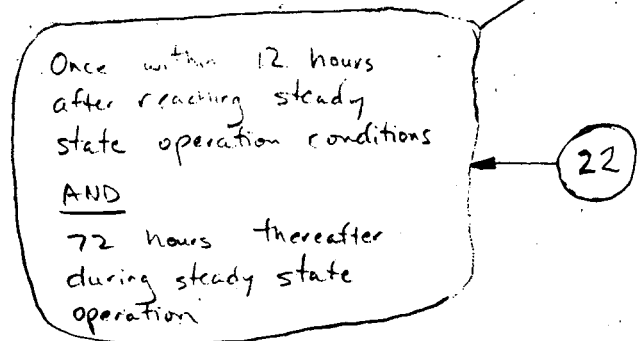 Once within 12 hours
after reaching steady
state operation conditions
AND
72 hours thereafter
during steady state
operation
22